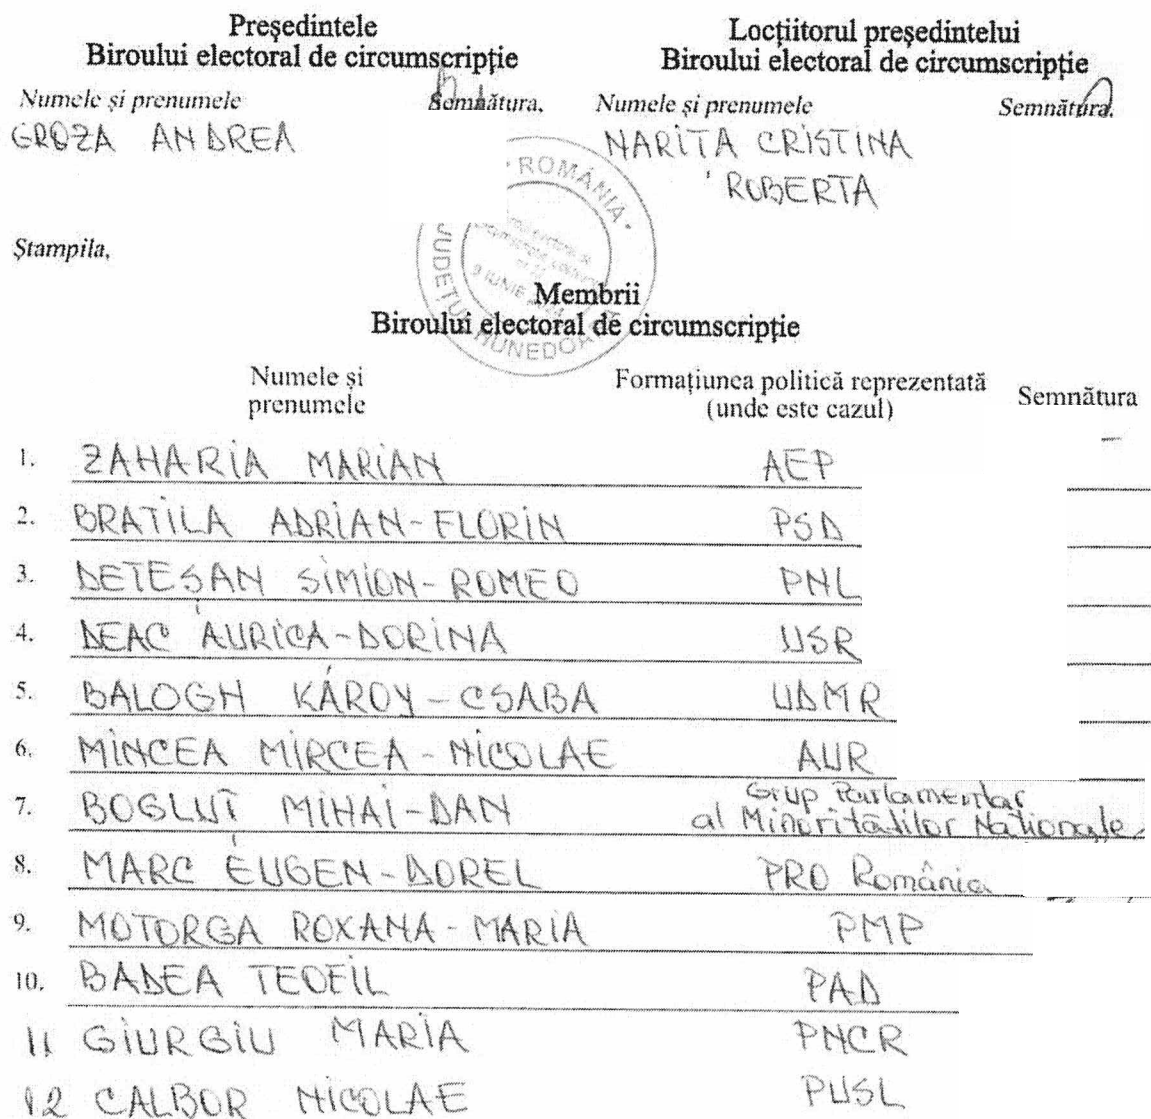 Președintele
Biroului electoral de circumscripție
Numele și prenumele Semnătura,
GROZA ANDREA
Locțiitorul președintelui
Biroului electoral de circumscripție
Numele și prenumele Semnătura,
NARIȚA CRISTINA
ROBERTA
Ștampila,
ROMÂNIA
JUDEȚUL HUNEDOARA
9 IUNIE
Membrii
Biroului electoral de circumscripție
Numele și
prenumele
Formațiunea politică reprezentată
(unde este cazul)
Semnătura
1. ZAHARIA MARIAN AEP
2. BRATILA ADRIAN-FLORIN PSD
3. DETEȘAN SIMION-ROMEO PNL
4. DEAC AURICA-DORINA USR
5. BALOGH KÁROY-CSABA UDMR
6. MINCEA MIRCEA-NICOLAE AUR
7. BOGLUȚ MIHAI-DAN Grup Parlamentar
al Minorităților Naționale
8. MARC EUGEN-DOREL PRO România
9. MOTORGA ROXANA-MARIA PMP
10. BADEA TEOFIL PAD
11 GIURGIU MARIA PNCR
12 CALBOR NICOLAE PUSL